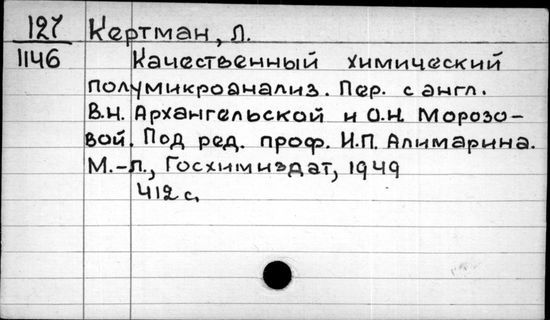 127 Кертман, Л.
1146 Качественный химический
полумикроанализ. Пер. с англ.
В.Н. Архангельской и О.Н. Морозо-
вой. Под ред. проф. И.П. Алимарина.
М.-Л., Госхимиздат, 1949
412 с.